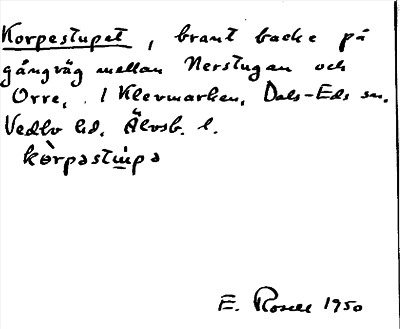 Korpestupet, brant backe på
gångväg mellan Nerstugan och
Orre, i Klevmarken, Dals-Eds sn.
Vedbo hd. Älvsb. l.
kòrpastùpə
E. Rosell 1950